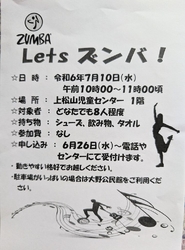 ZUMBA
Lets ズンバ!
☆日 時:令和6年7月10日(水)
午前10時00~11時00頃
☆場 所:上松山児童センター 1階
☆対象者:どなたでも8人程度
☆持ち物:シューズ、飲み物、タオル
☆参加費:なし
☆申し込み:6月26日(水)~電話や
センターにて受付けます。
・動きやすい格好でお越しください。
・駐車場がいっぱいの場合は大野公民館をご利用くだ
さい。